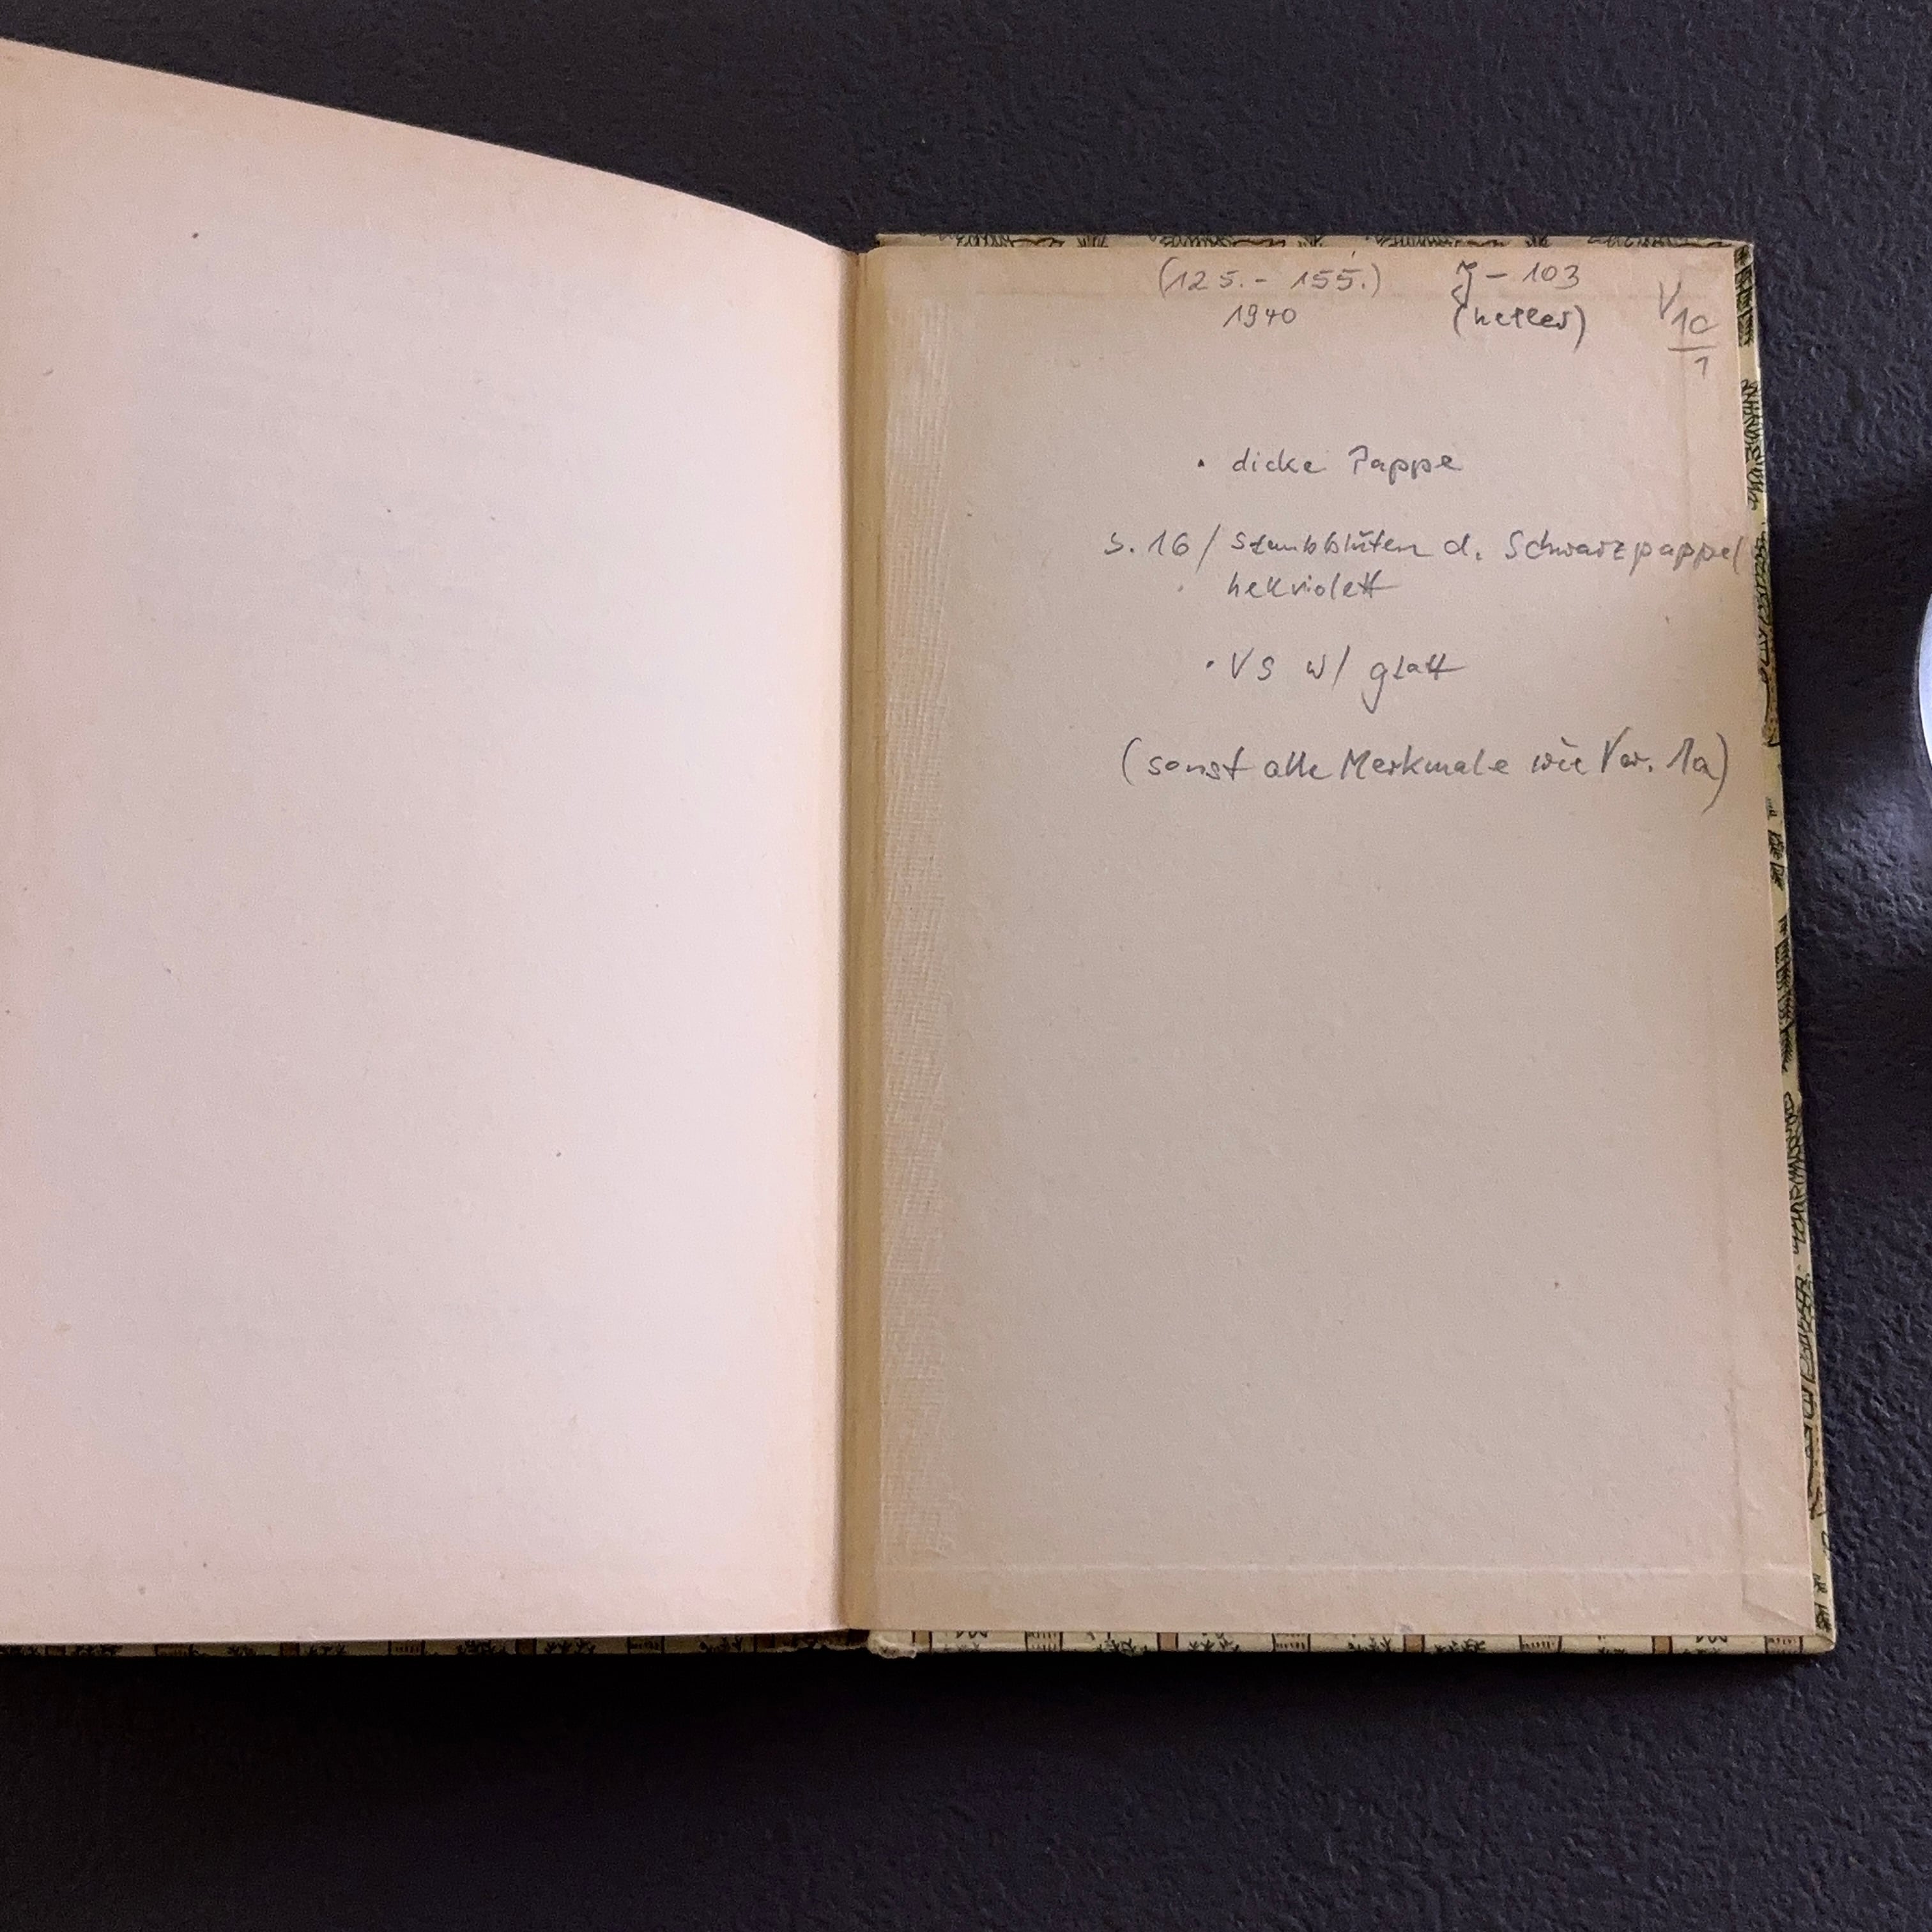 (125.- 155.) J - 103
1940 (heller)
V 1c
1
• dicke Pappe
S. 16 / Staubblüten d. Schwarzpappel
hellviolett
• VS w/ glatt
(sonst alle Merkmale wie Var. 1a)